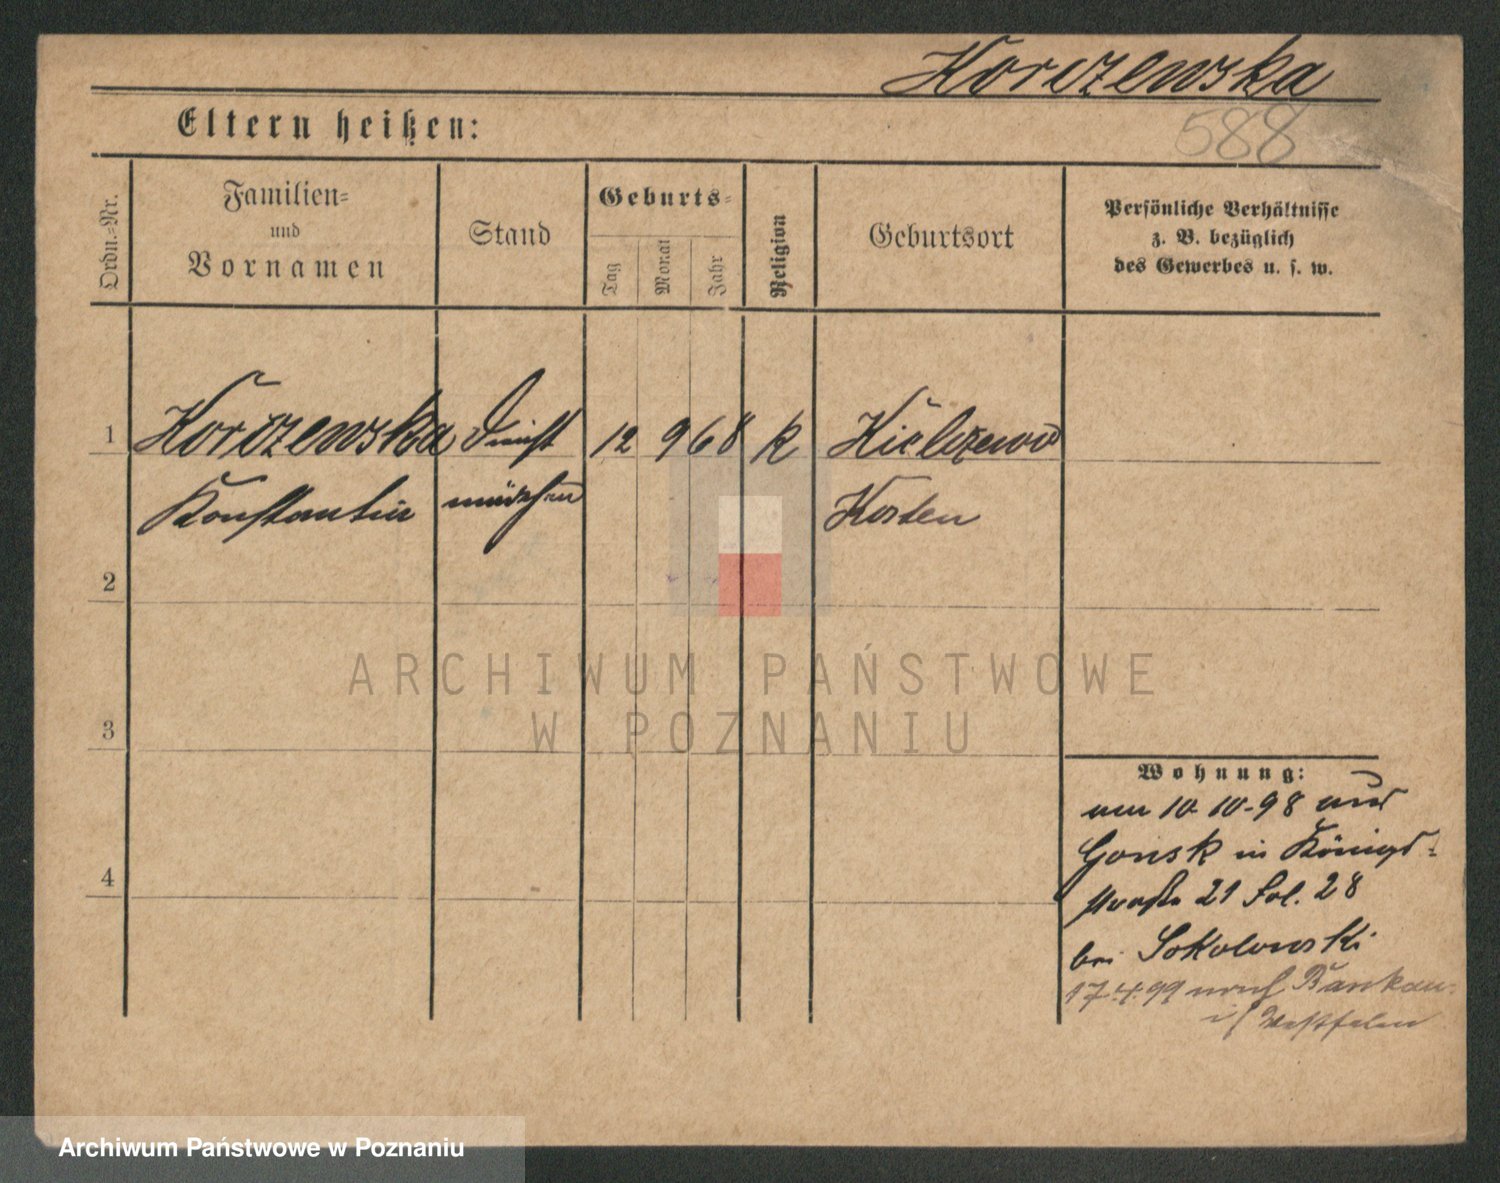 Korczewska
588
Eltern heißen:
Ordn.-Nr.
Familien-
und
Vornamen
Stand
Geburts-
Tag
Monat
Jahr
Religion
Geburtsort
Persönliche Verhältnisse
z. B. bezüglich
des Gewerbes u. s. w.
1 Korczewska Dienst 12 9 68 k Kielczewo
Konstantia mädchen Kosten
2
3
4
ARCHIWUM PAŃSTWOWE
W POZNANIU
Wohnung:
10-10-98 aus
Gonsk in Königs-
straße 21 Fol. 28
bei Sokolowski
17.4.99 nach
i/ Westfalen
Archiwum Państwowe w Poznaniu